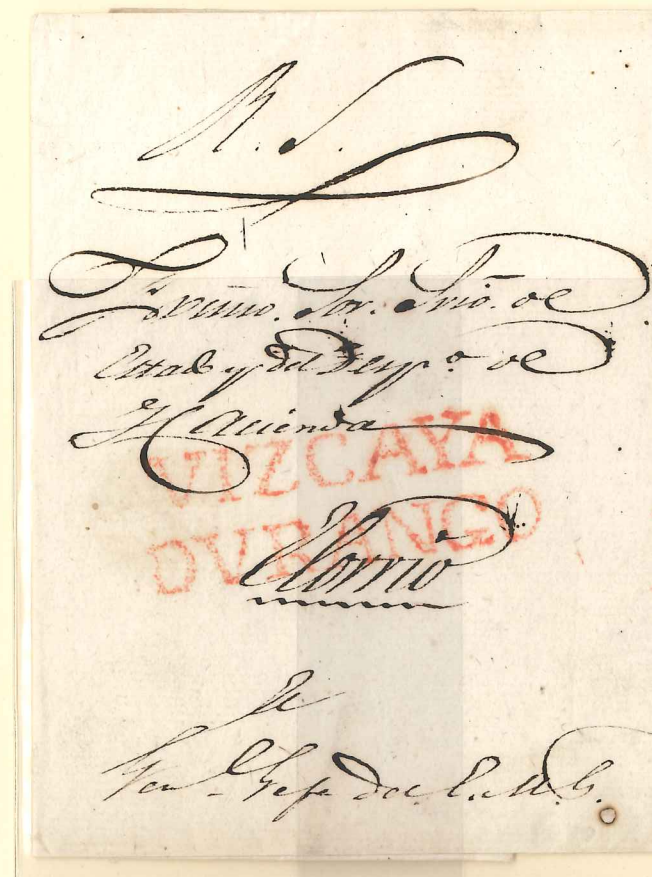 R. S.
Exmo. Sor. Srio. de
Estado y del Desp.o de
Hacienda
VIZCAYA
DVRANGO
Elorrio
El
Gen.l Gefe del E. M. G.